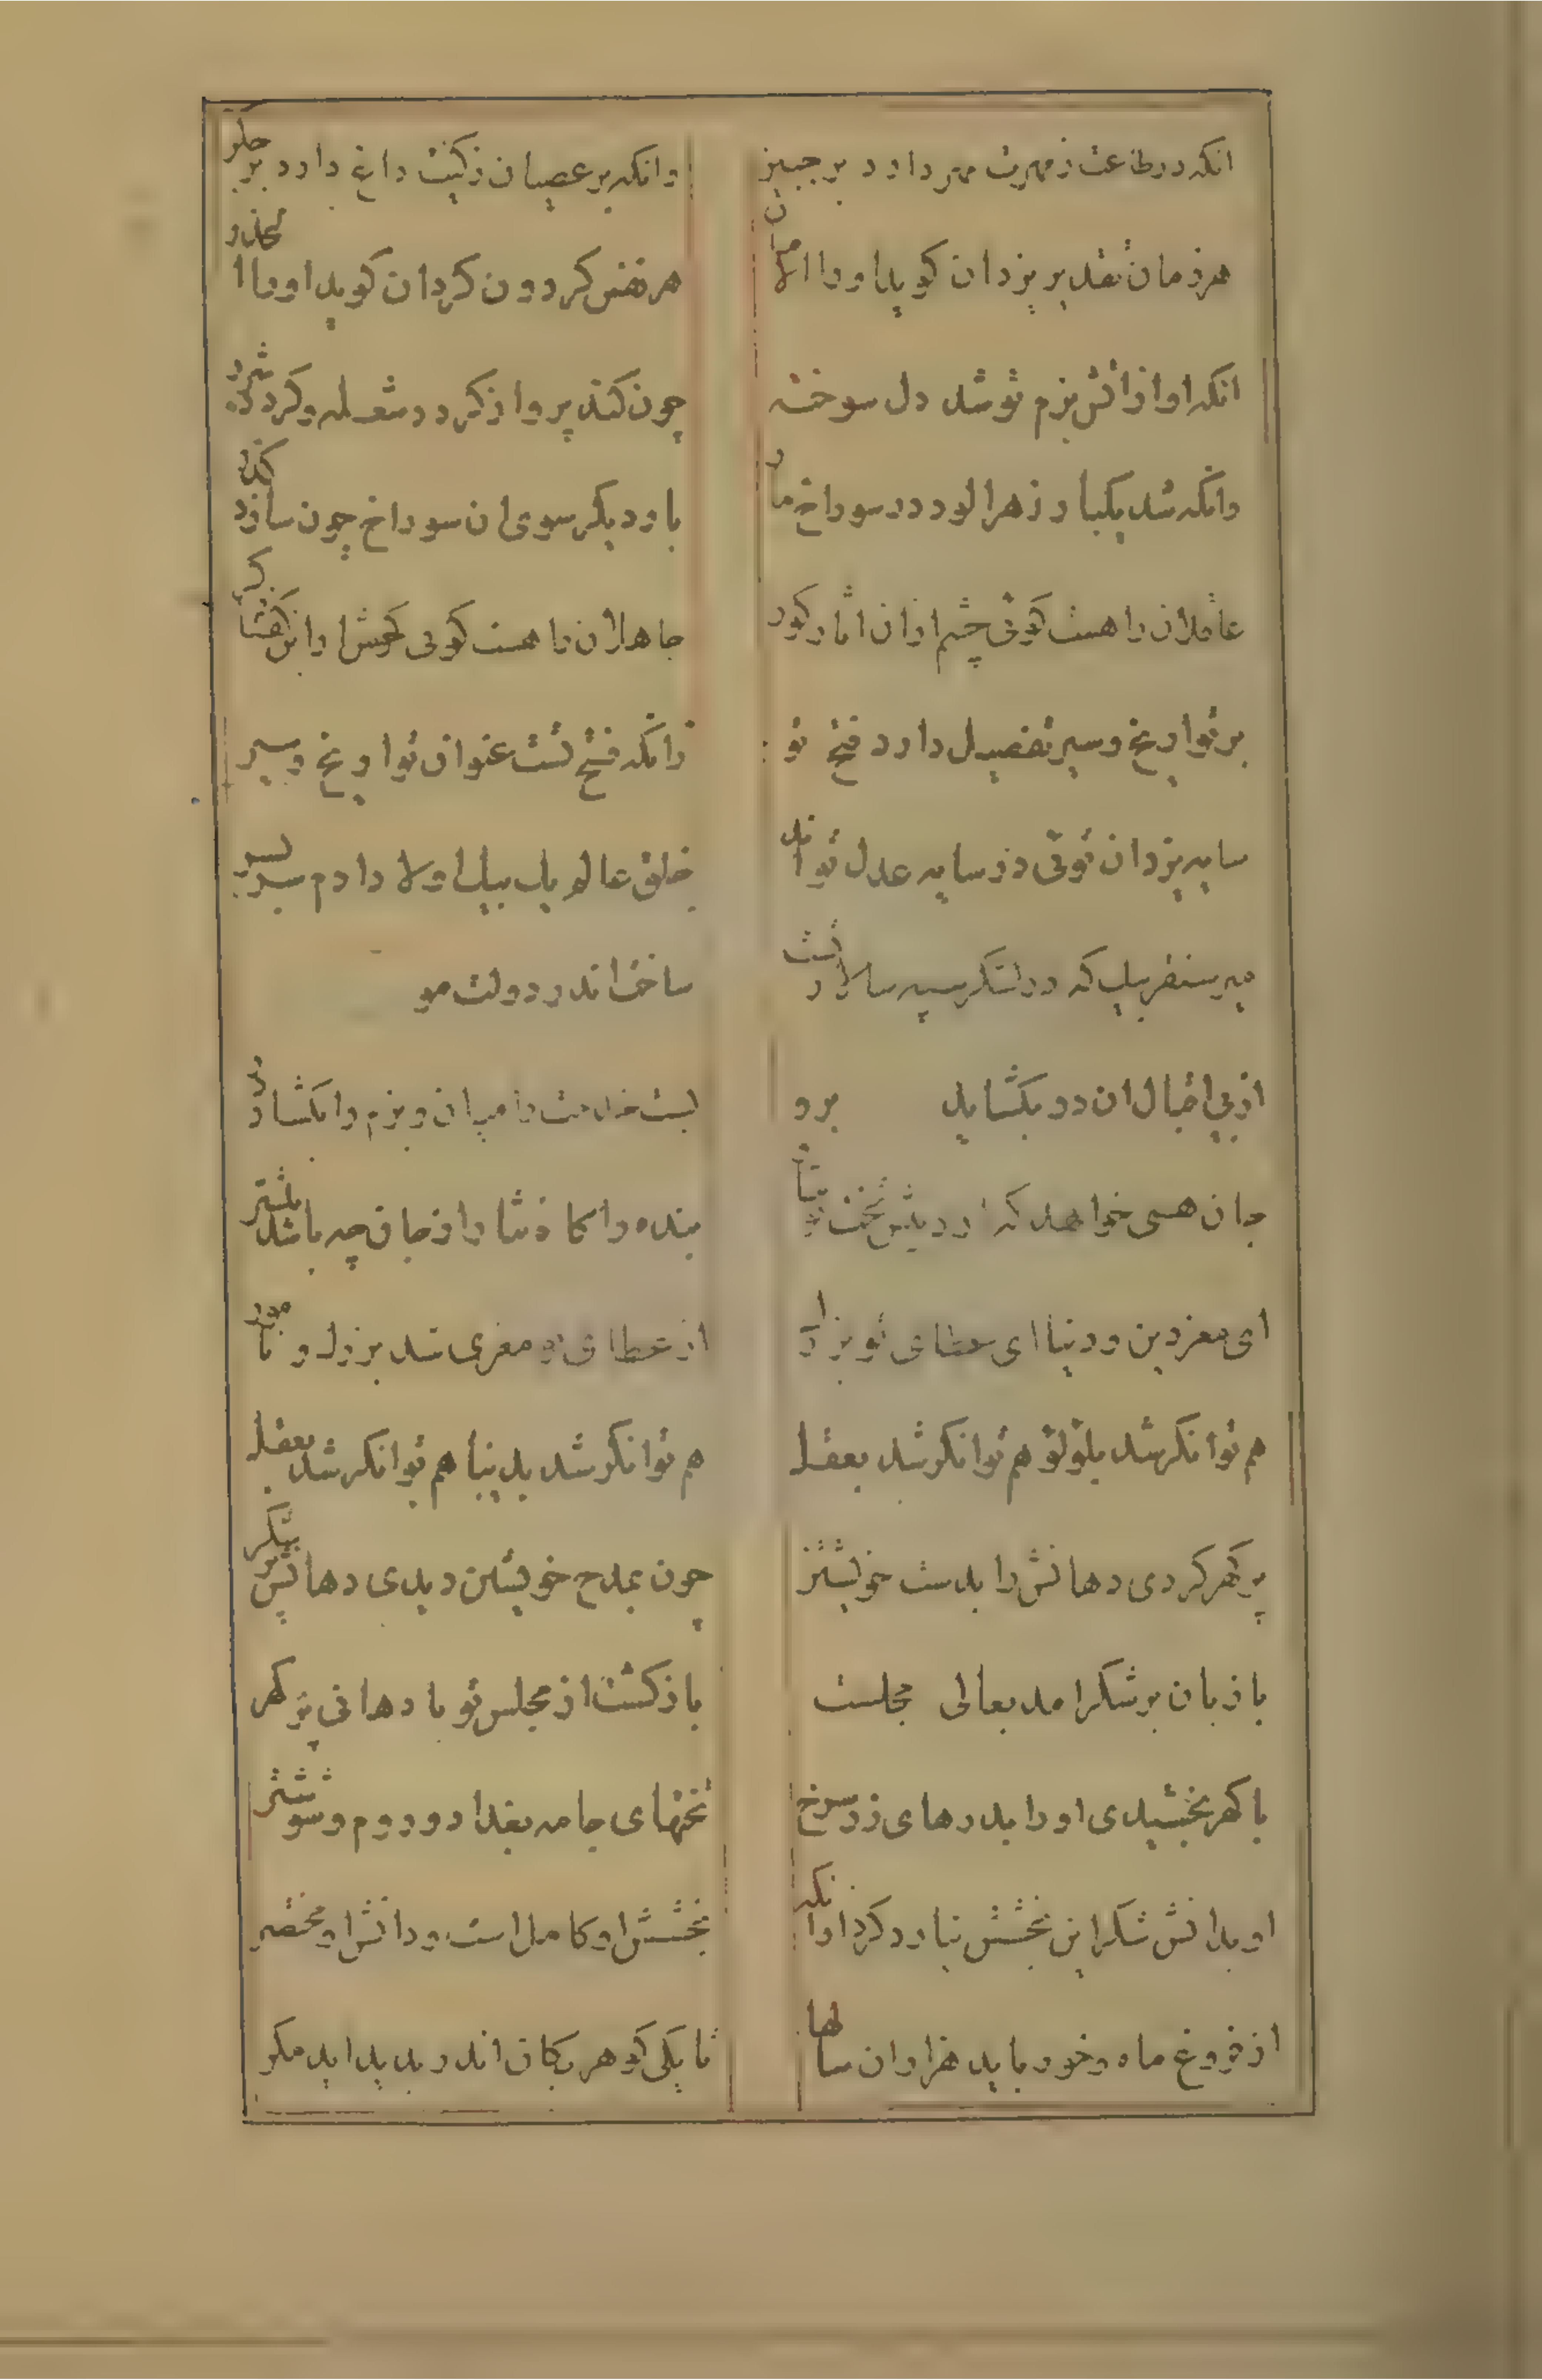 انکه در طاعت ز مهرت مهر دارد بر جبین
وانکه بر عصیان ز کینت داغ دارد بر جکر
هر زمان تقدیر یزدان کوید او را الامان
هر نفس کردون کردان کوید او را الحذر
انکه او از اتش بزم تو شد دل سوخته
چون کند پرواز کرد شعله و کرد شرر
وانکه شد یکبار زهرالود در سوراخ مار
بار دیکر سوی ان سوراخ چون سازد کذر
عاقلان را هست کوئی چشم ازان اثار کور
جاهلان را هست کوئی کوش ازین کفتار کر
بر تواریخ و سیر تفضیل دارد فتح تو
زانکه فتح تست عنوان تواریخ و سیر
سایه یزدان توئی در سایه عدل تواند
خلق عالم یک بیک اولاد ادم سر بسر
میر سنقر بیک که در لشکر سپه سالار تست
ساخت اندر دولت مو
از پی اقبال ان در بکشاید برو
بست خدمت را میان و بزم را بکشاد در
جان همی خواهد که در پیش تخت تو نثار
بنده را کاه نثار از جان چه باشد بیشتر
ای معز دین و دنیا ای عطای تو بزرک
از عطای تو معزی شد بزرک و نامور
هم توانکر شد بلؤلؤ هم توانکر شد بعقل
هم توانکر شد بدینار هم توانکر شد بعقل
پر کهر کردی دهانش را بدست خویشتن
چون بمدح خویشتن دیدی دهانش پر شکر
با زبان پر شکر امد بعالی مجلست
باز کشت از مجلس تو با دهانی پر کهر
با کهر بخشیدی او را بدرهای زر سرخ
تختهای جامه بغداد و روم و شوشتر
او بدانش شکر این بخشش نیارد کرد ازانکه
بخشش او کامل است و دانش او مختصر
از فروغ ماه و خور باید فراوان سالها
تا یکی کوهر بکان اندر بدید اید مکر